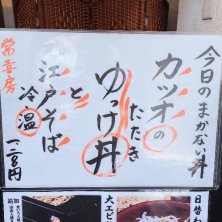 今日のまかない丼
カツオの
たたき
ゆっけ丼
と
江戸そば
冷温
常喜房